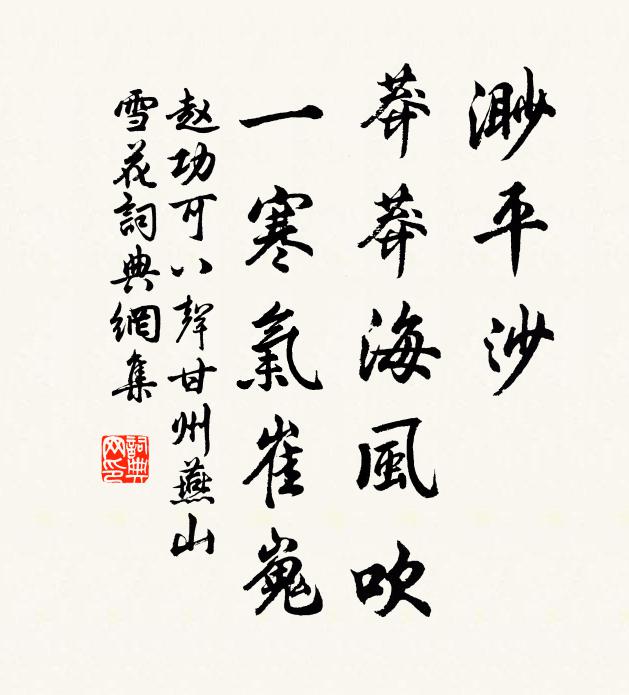 渺平沙
莽莽海風吹
一寒氣崔嵬
赵功可八聲甘州燕山
雪花詞典網集
詞典网印